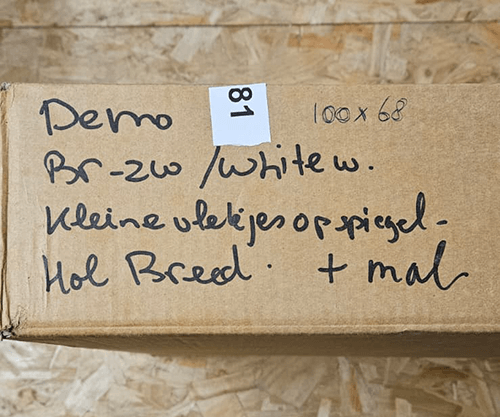 Demo 81 100x68
Br-zw /white w.
kleine vlekjes op spiegel-
Hol Breed. + mal